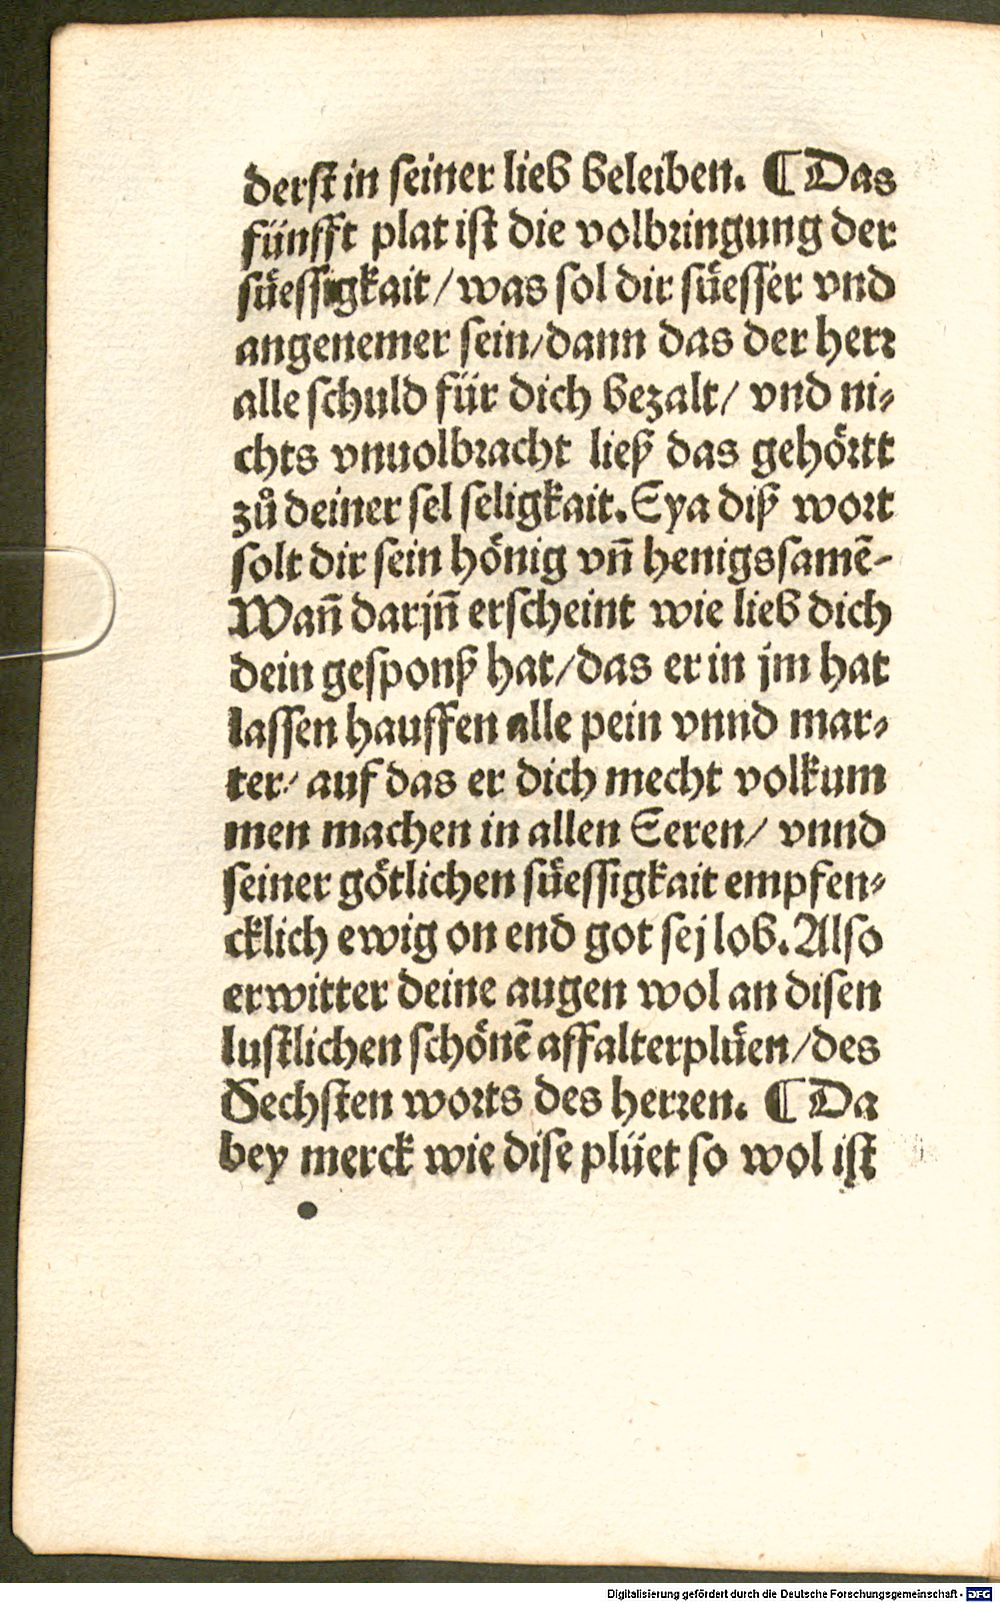 derst in seiner lieb beleiben. ¶ Das
fünfft plat ist die volbringung der
süessigkait / was sol dir süesser vnd
angenemer sein / dann das der herr
alle schuld für dich bezalt / vnd ni⸗
chts vnuolbracht ließ das gehörtt
zů deiner sel seligkait. Eya diß wort
solt dir sein hönig vn̄ henigssamē-
Wan̄ darjn̄ erscheint wie lieb dich
dein gesponß hat / das er in jm hat
lassen hauffen alle pein vnnd mar⸗
ter / auf das er dich mecht volkum
men machen in allen Eeren / vnnd
seiner götlichen süessigkait empfen⸗
cklich ewig on end got sej lob. Also
erwitter deine augen wol an disen
lustlichen schönē affalterplüen / des
Sechsten worts des herren. ¶ Da
bey merck wie dise plüet so wol ist
Digitalisierung gefördert durch die Deutsche Forschungsgemeinschaft - DFG